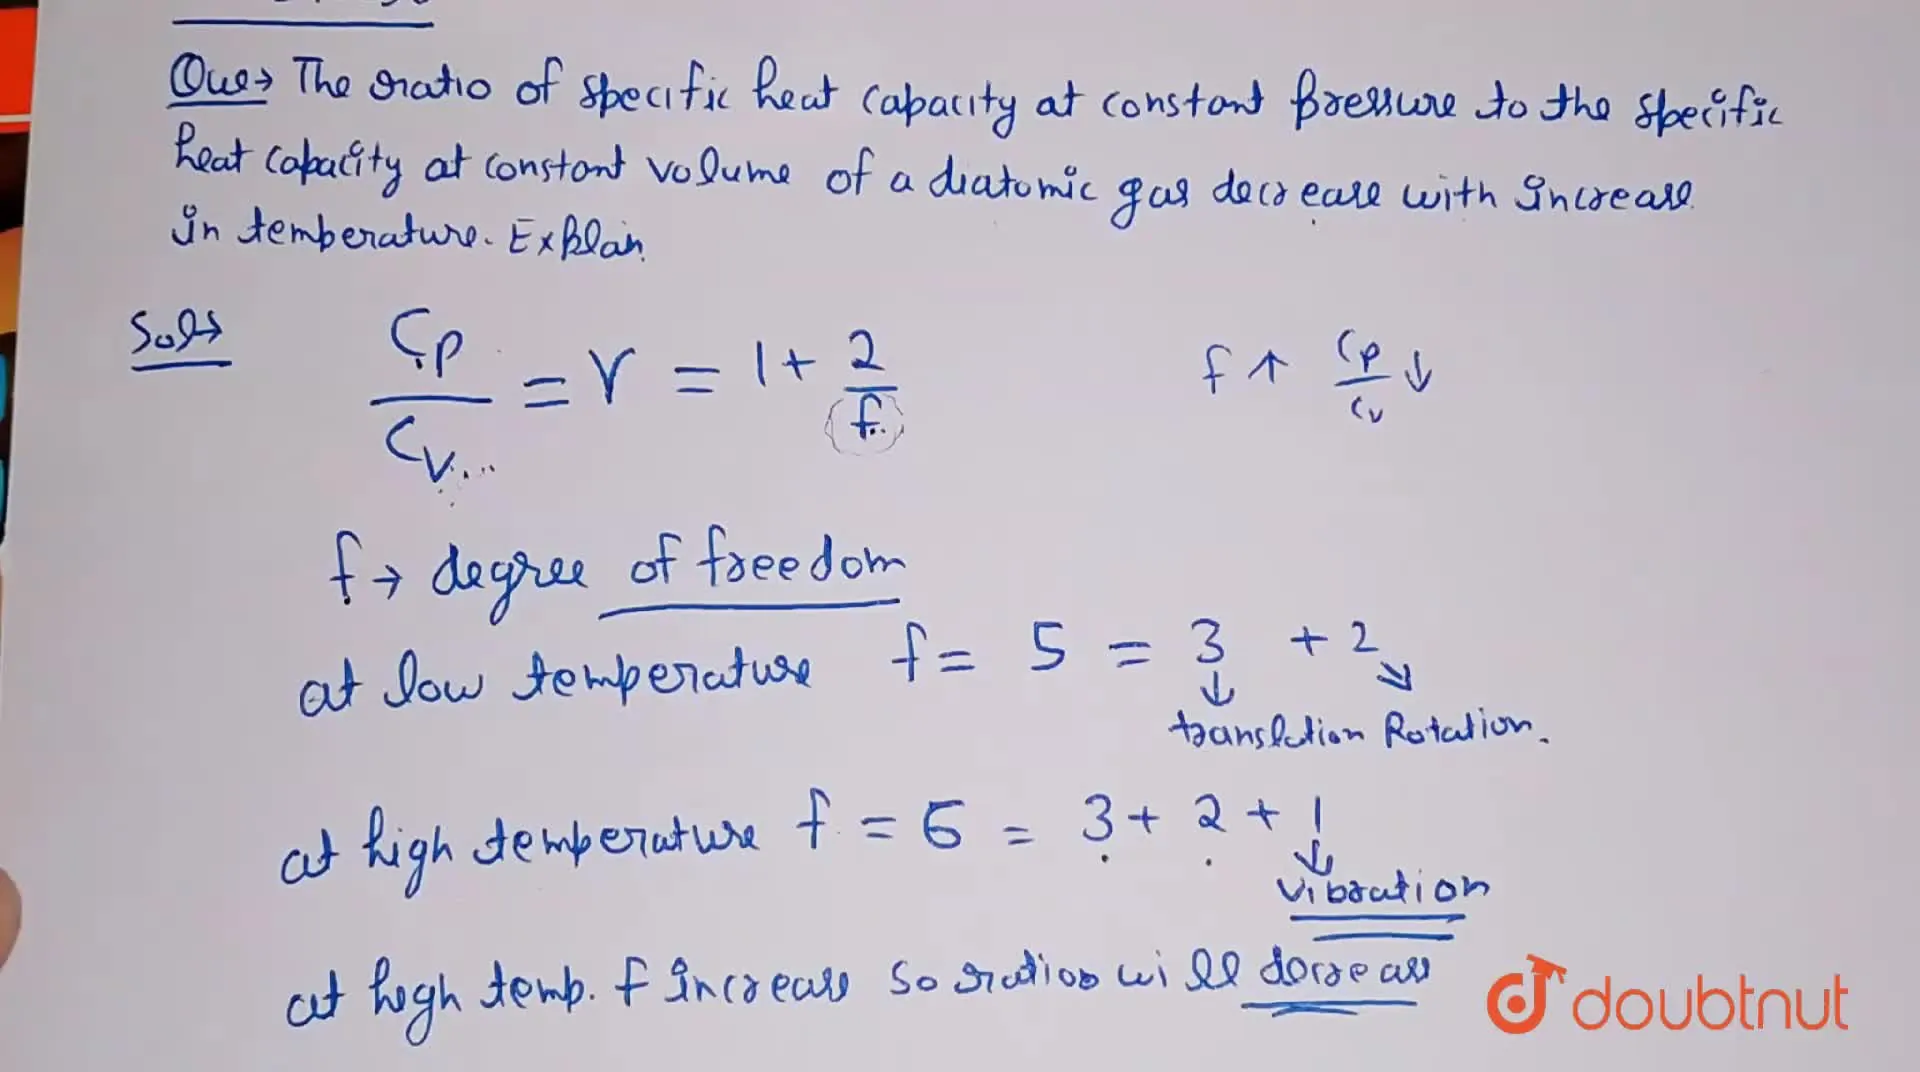 Que→ The ratio of specific heat capacity at constant pressure to the specific
heat capacity at constant volume of a diatomic gas decrease with increase
in temperature. Explain.
Sol→ Cp/Cv = γ = 1 + 2/f
f ↑ Cp/Cv ↓
f → degree of freedom
at low temperature f = 5 = 3 + 2
↓ ↘
translation Rotation.
at high temperature f = 6 = 3 + 2 + 1
↓
vibration
at high temp. f increase so ratios will decrease
doubtnut